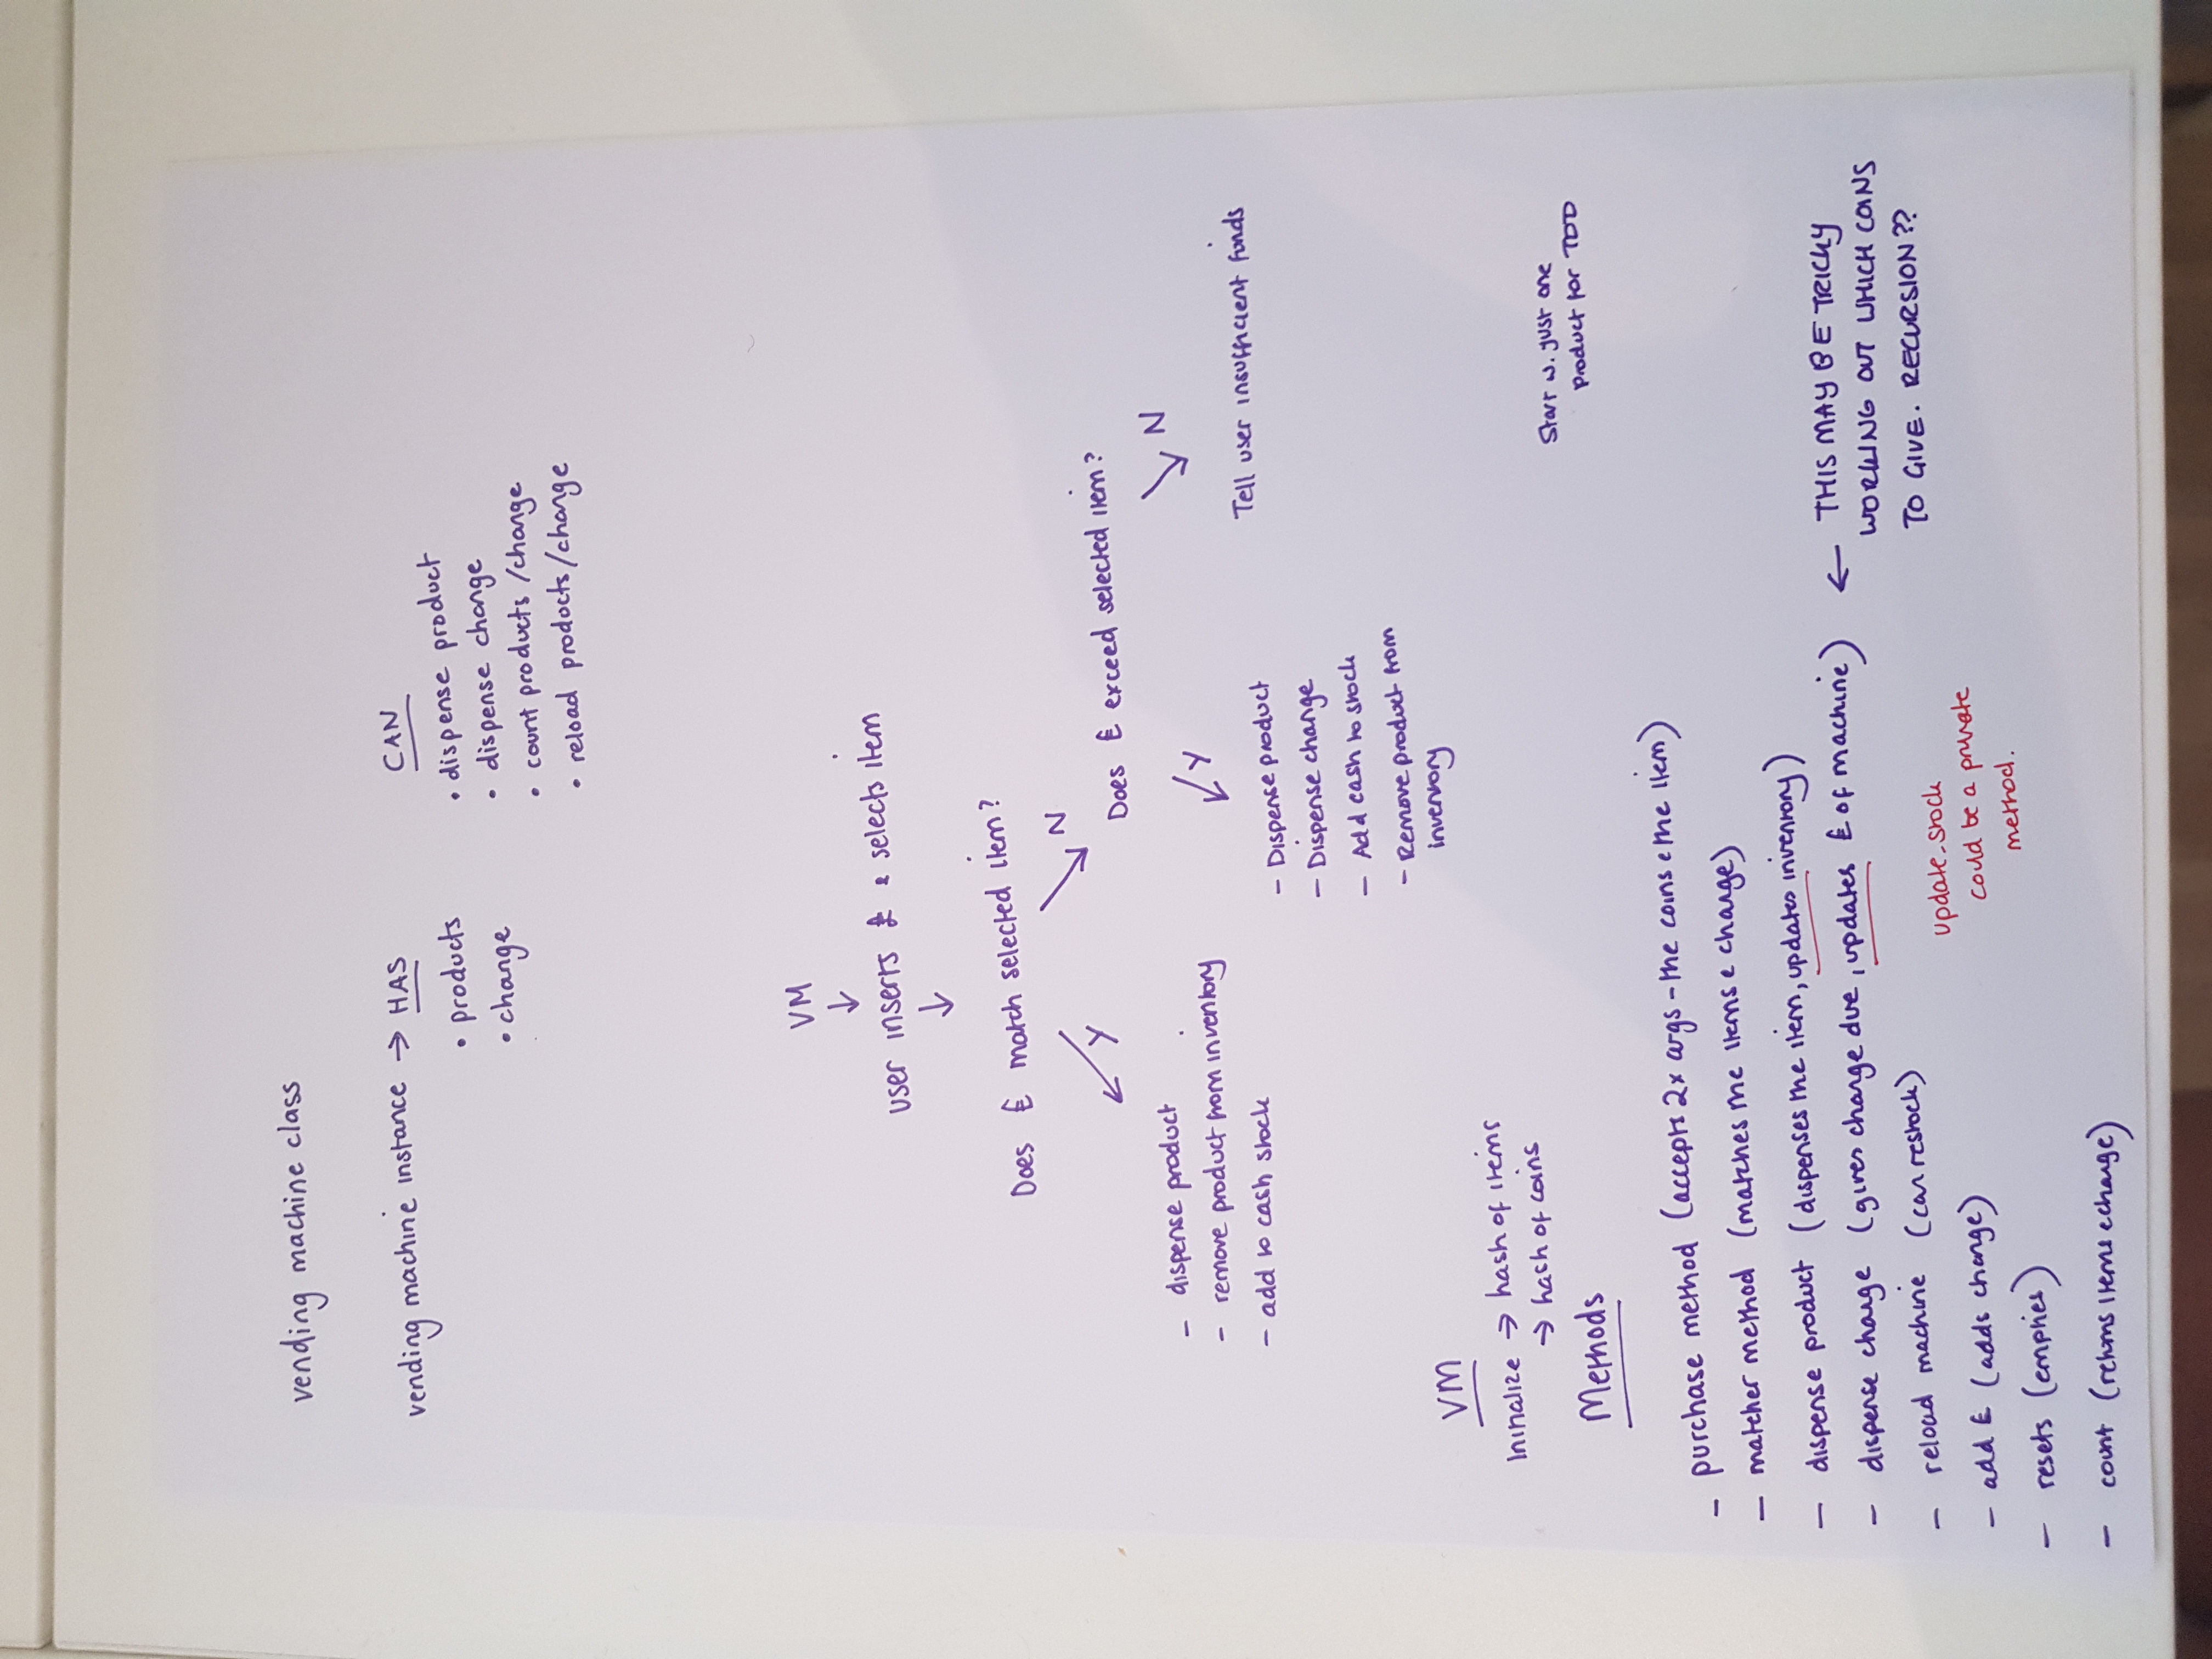 vending machine class
vending machine instance → HAS
• products
• change
CAN
• dispense product
• dispense change
• count products /change
• reload products/change
VM
↓
user inserts £ & selects item
↓
Does £ match selected item?
Y
N
- dispense product
- remove product from inventory
- add to cash stock
Does £ exceed selected item?
Y
N
- Dispense product
- Dispense change
- Add cash to stock
- Remove product from
inventory
Tell user insufficient funds
VM
Initialize → hash of items
→ hash of coins
Start w. just one
product for TDD
Methods
- purchase method (accepts 2x args - the coins & the item)
- matcher method (matches the items & change)
- dispense product (dispenses the item, updates inventory)
- dispense change (gives change due, updates £ of machine)
← THIS MAY BE TRICKY
WORKING OUT WHICH COINS
TO GIVE. RECURSION??
- reload machine (can restock)
- add £ (adds change)
- resets (empties)
- count (returns items & change)
update_stock
could be a private
method.